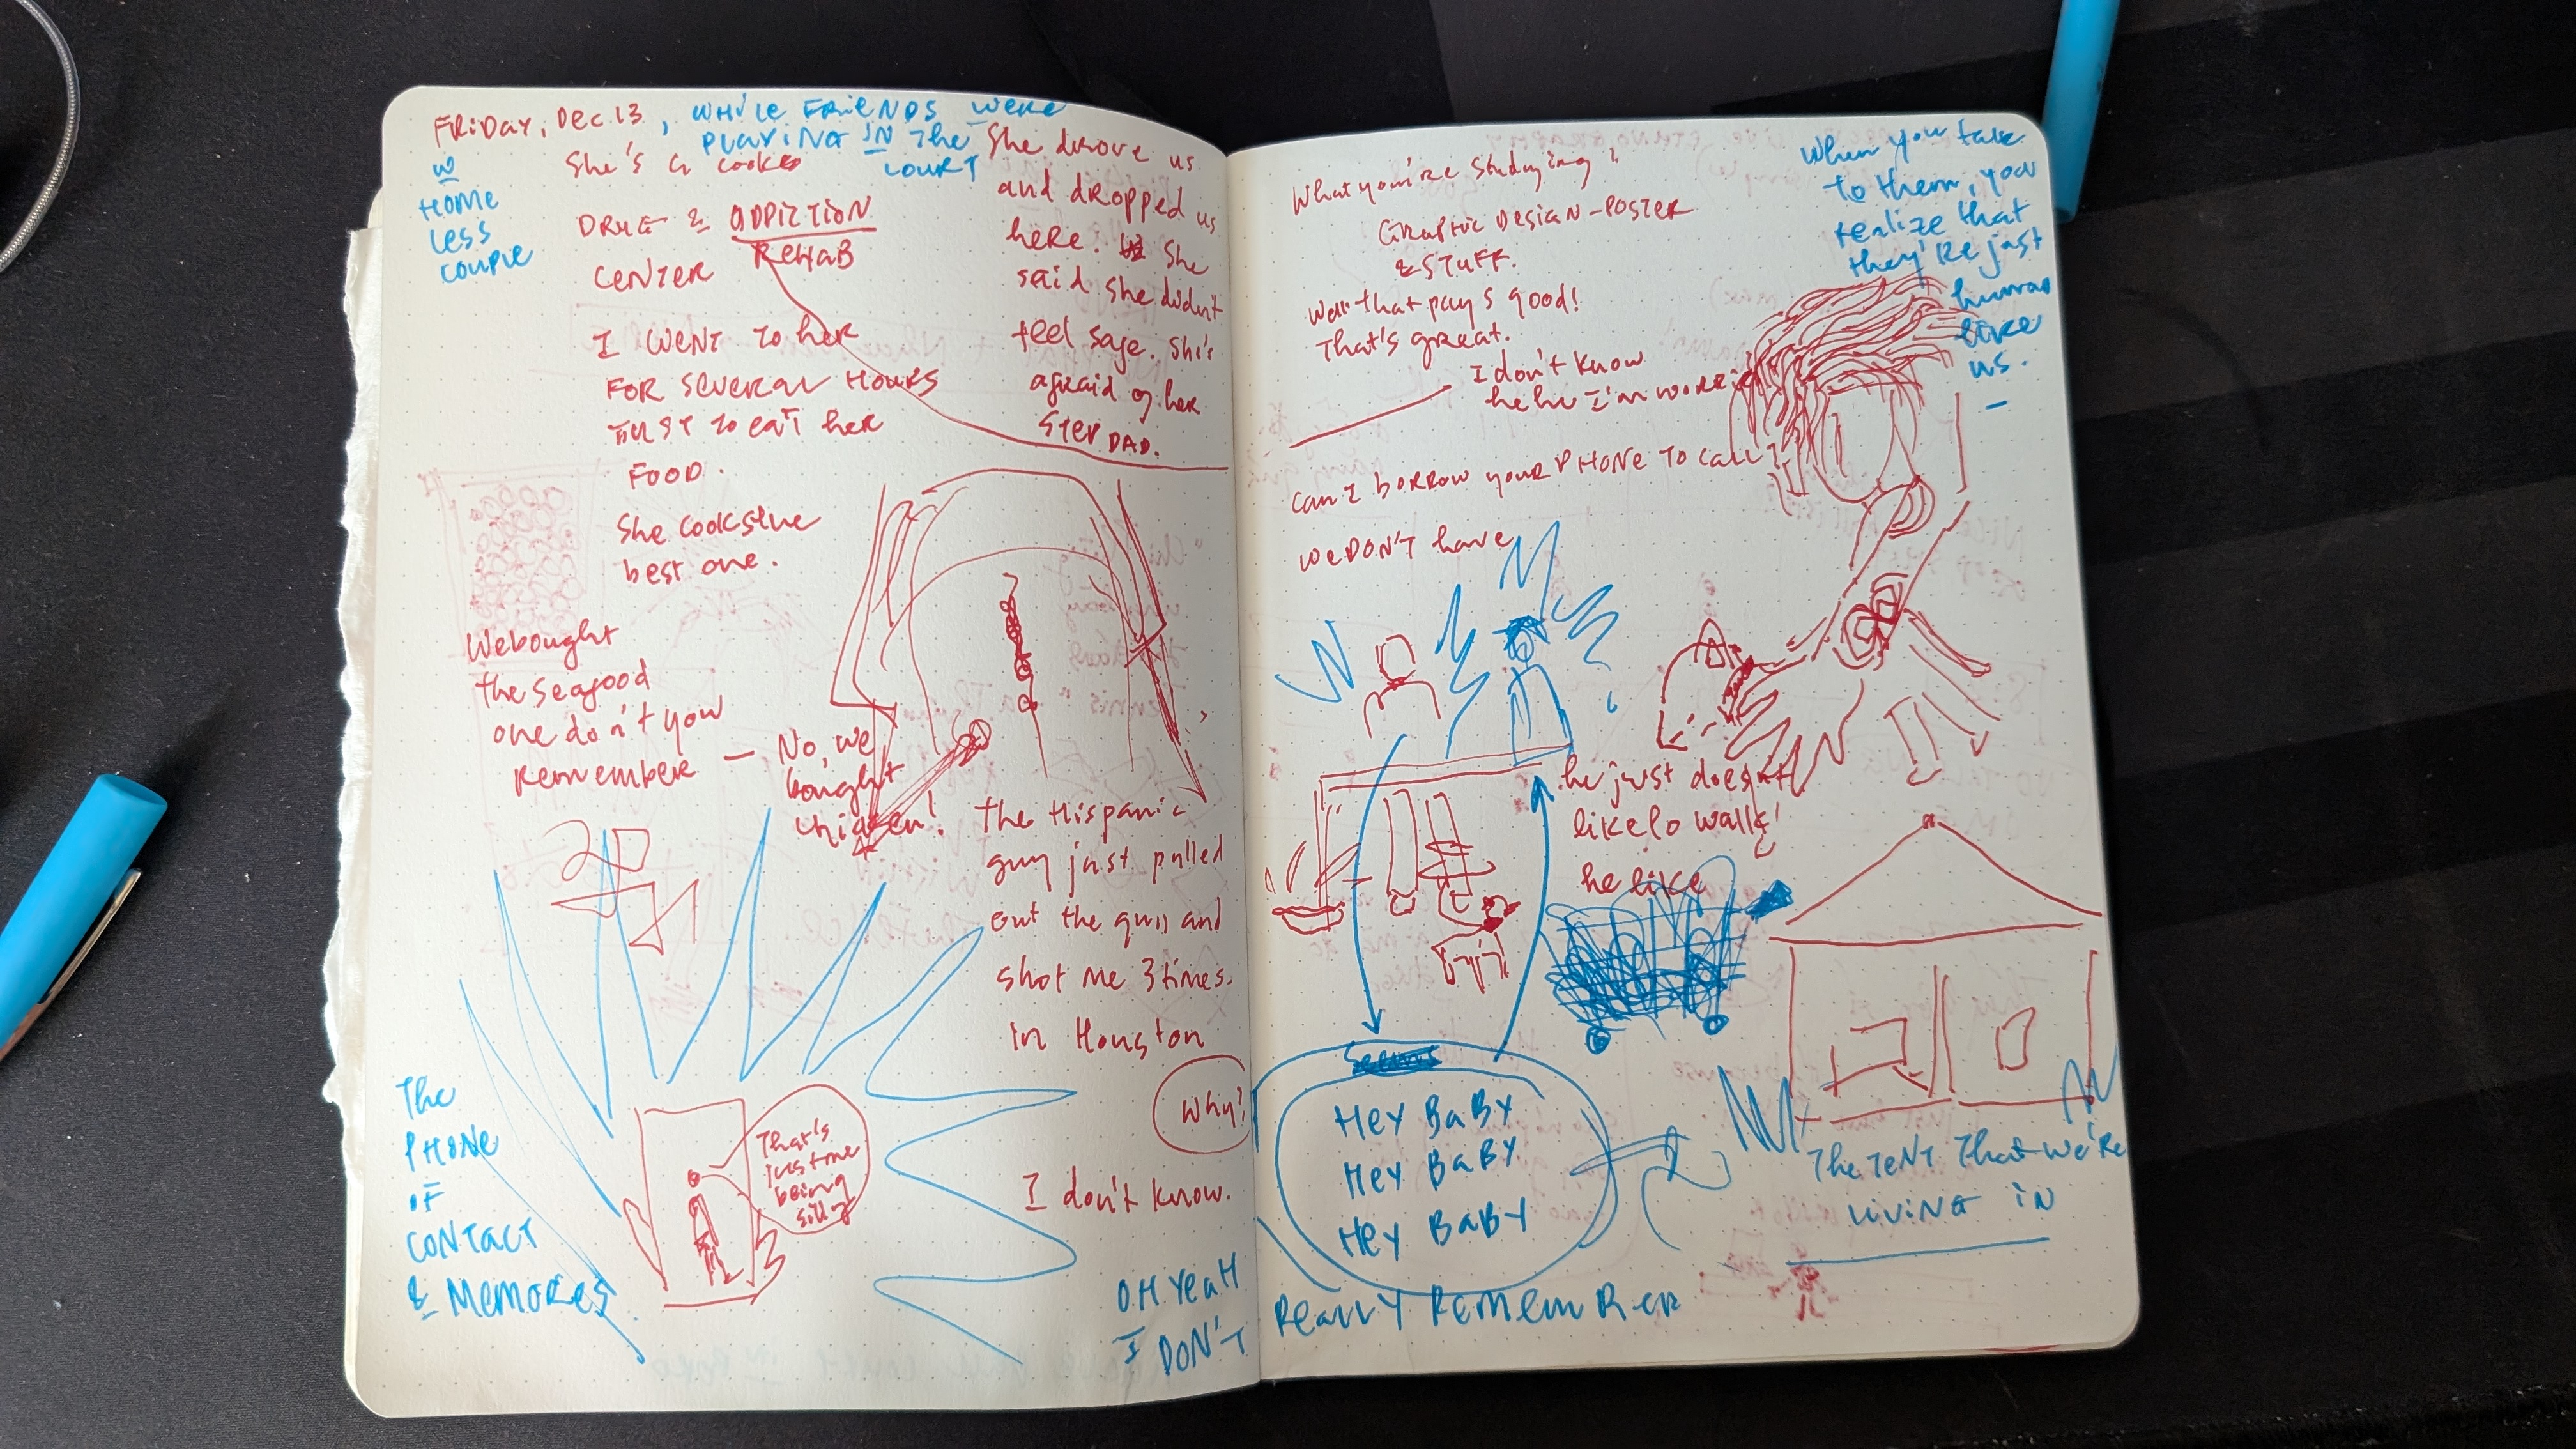 FRIDAY, DEC 13, WHILE FRIENDS WERE
PLAYING IN THE
COURT
W
HOME
LESS
COUPLE
She's a cook
DRUG & ADDICTION
REHAB
CENTER
I WENT TO her
FOR SEVERAL HOURS
JUST TO EAT her
FOOD.
She cooks the
best one.
She drove us
and dropped us
here. She
said she didn't
feel safe. She's
afraid of her
STEP DAD.
We bought
the seafood
one don't you
Remember — No, we
bought
chicken!
The Hispanic
guy just pulled
out the gun and
shot me 3 times.
in Houston
Why?
I don't know.
The
PHONE
OF
CONTACT
& MEMORIES
That's
just me
being
silly
OH YEAH
I DON'T REALLY REMEMBER
What you're studying?
GRAPHIC DESIGN - POSTER
& STUFF.
Well that pays good!
That's great.
I don't know
hehe I'm
can I borrow your PHONE TO CALL?
we DON'T have
When you talk
to them, you
realize that
they're just
human
like
us.
he just doesn't
like to walk!
he like
Hey BaBY
Hey BaBY
Hey BaBY
The TENT That we're
LIVING IN